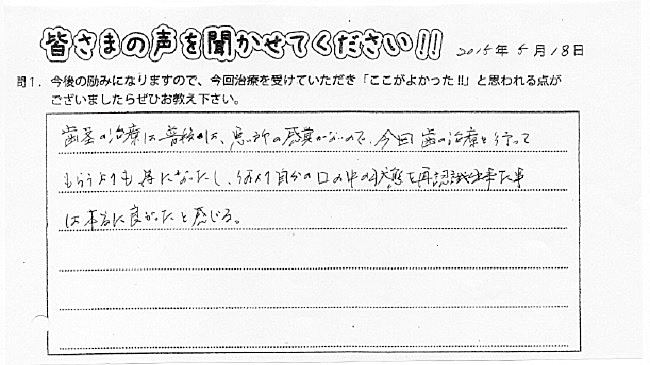 皆さまの声を聞かせてください!! 2015年5月18日
問1. 今後の励みになりますので、今回治療を受けていただき「ここがよかった!!」と思われる点が
ございましたらぜひお教え下さい。
歯茎の治療は普段は、悪い所の感覚がないので、今回歯の治療を行って
もらうよりも 得になったし、改めて自分の口の中の状態を再認識出来た事
は本当に良かったと感じる。